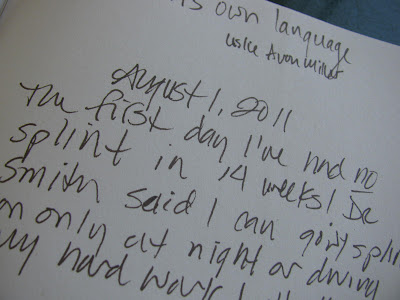 its own language
August 1, 2011
The first day I've had no
splint in 14 weeks! Dr
Smith said I can go w/ splin
on only at night or driving
my hand wor